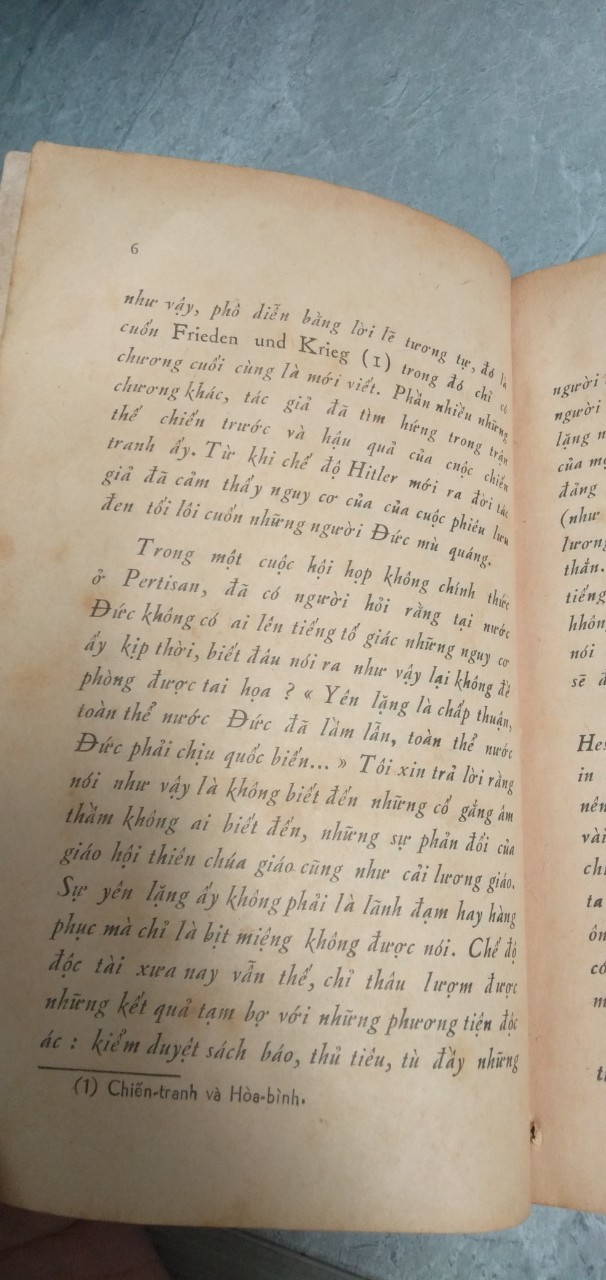 6
như vậy, phô diễn bằng lời lẽ tương tự, đó là
cuốn Frieden und Krieg (1) trong đó chỉ có
chương cuối cùng là mới viết. Phần nhiều những
chương khác, tác giả đã tìm hứng trong trận
thế chiến trước và hậu quả của cnộc chiến
tranh ấy. Từ khi chế độ Hitler mới ra đời tác
giả đã cảm thấy nguy cơ của của cuộc phiêu lưu
đen tối lôi cuốn những người Đức mù quáng.
Trong một cuộc hội họp không chính thức
ở Pertisan, đã có người hỏi rằng tại nước
Đức không có ai lên tiếng tố giác những nguy cơ
ấy kịp thời, biết đâu nói ra như vậy lại không đề
phòng được tai họa ? « Yên lặng là chấp thuận,
toàn thể nước Đức đã lầm lẫn, toàn thể nước
Đức phải chịu quốc biến... » Tôi xin trả lời rằng
nói như vậy là không biết đến những cố gắng âm
thầm không ai biết đến, những sự phản đối của
giáo hội thiên chúa giáo cũng như cải lương giáo.
Sự yên lặng ấy không phải là lãnh đạm hay hàng
phục mà chỉ là bịt miệng không được nói. Chế độ
độc tài xưa nay vẫn thế, chỉ thâu lượm được
những kết quả tạm bợ với những phương tiện độc
ác : kiểm duyệt sách báo, thủ tiêu, tù đầy những
(1) Chiến-tranh và Hòa-bình.
người
người
lặng
của
đảng
(như
lương
thần.
tiếng
hhông
nói
sẽ
in
nên
vài
ta
có